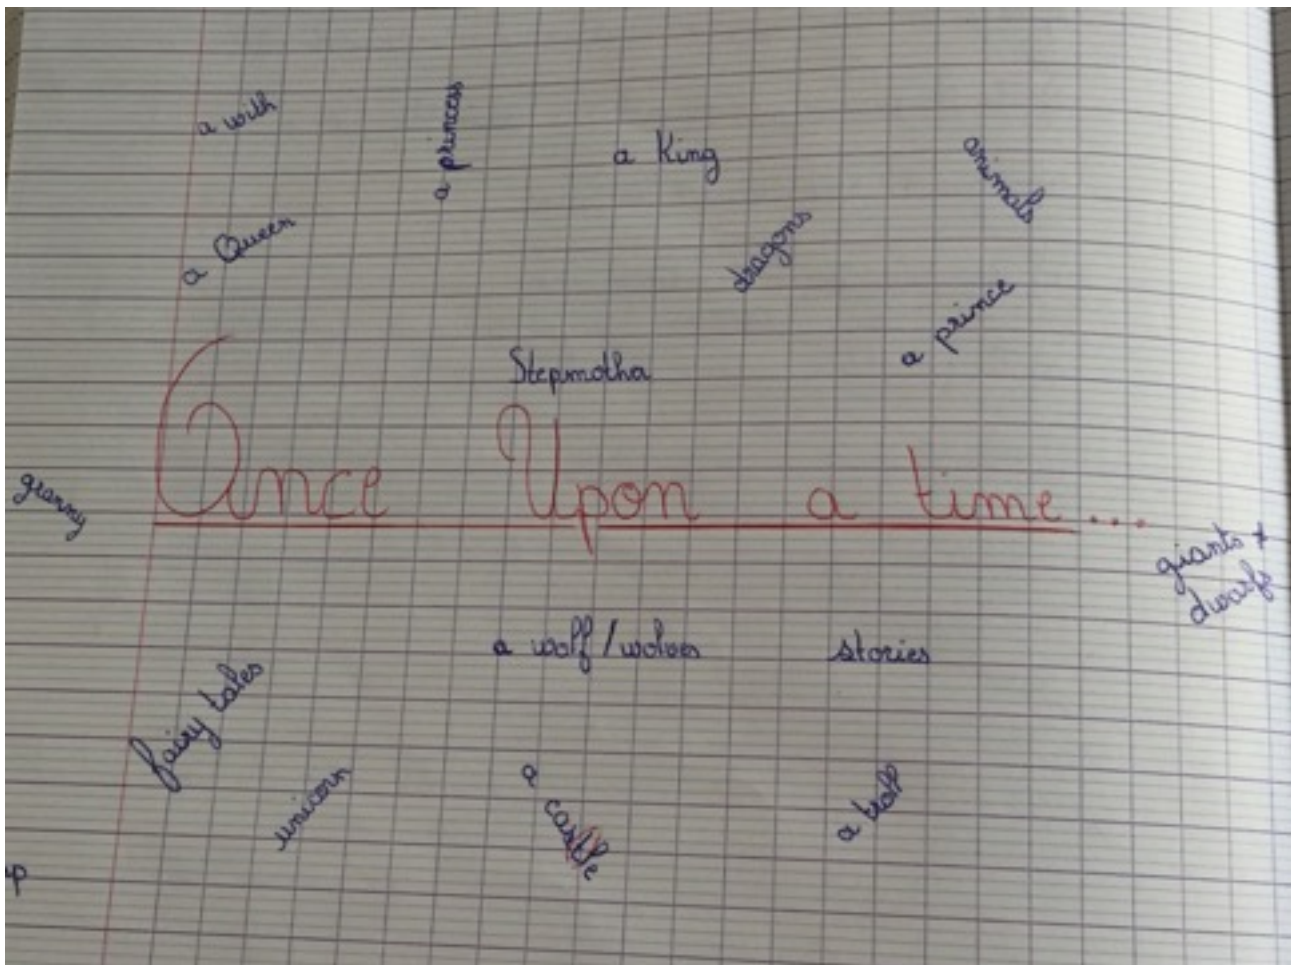 a with
a princess
a King
animals
a Queen
dragons
a prince
Stepmotha
Once Upon a time...
granny
giants +
dwarfs
a wolf / wolves
stories
fairy tales
unicorn
a castle
a troll
p